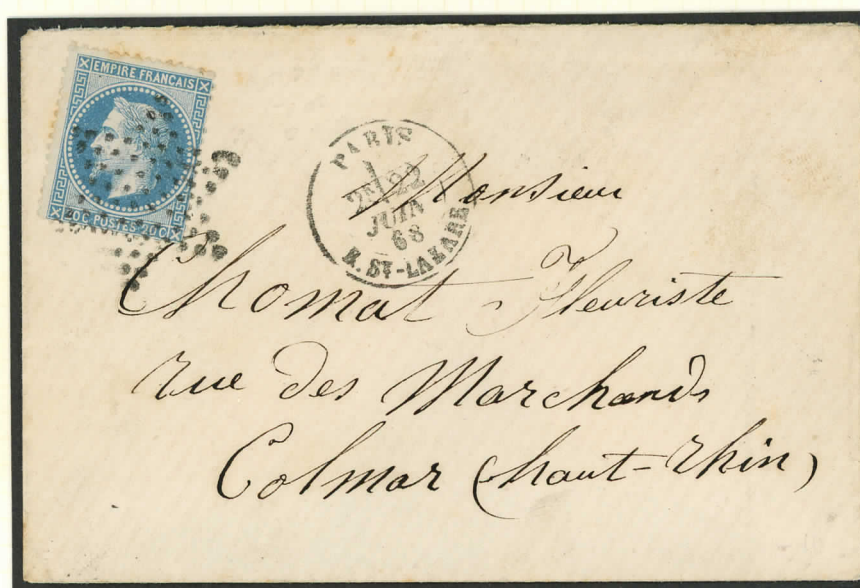 EMPIRE FRANÇAIS
20C POSTES 20C
PARIS
22
JUIN
68
R. ST-LAZARE
Monsieur
Chomat Fleuriste
rue des Marchands
Colmar (haut-Rhin)